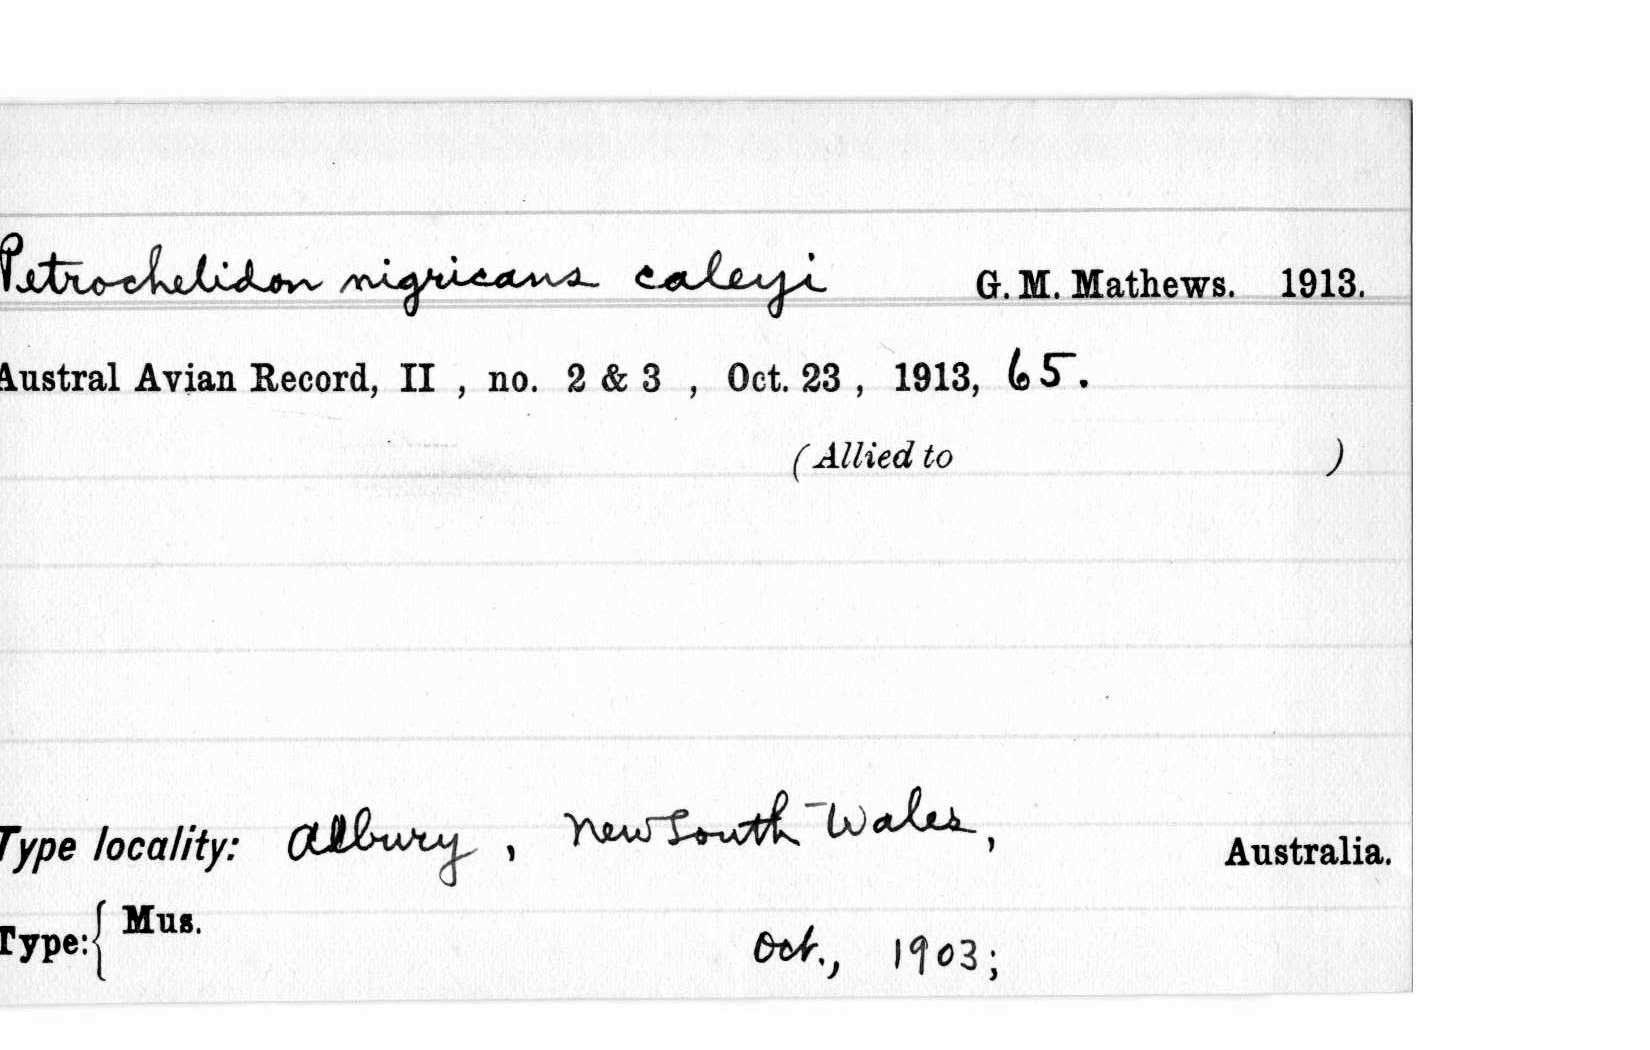 Petrochelidon nigricans caleyi G. M. Mathews. 1913.
Austral Avian Record, II , no. 2 & 3 , Oct. 23 , 1913, 65.
(Allied to )
Type locality: Albury , New South Wales, Australia.
Type: { Mus. Oct., 1903;